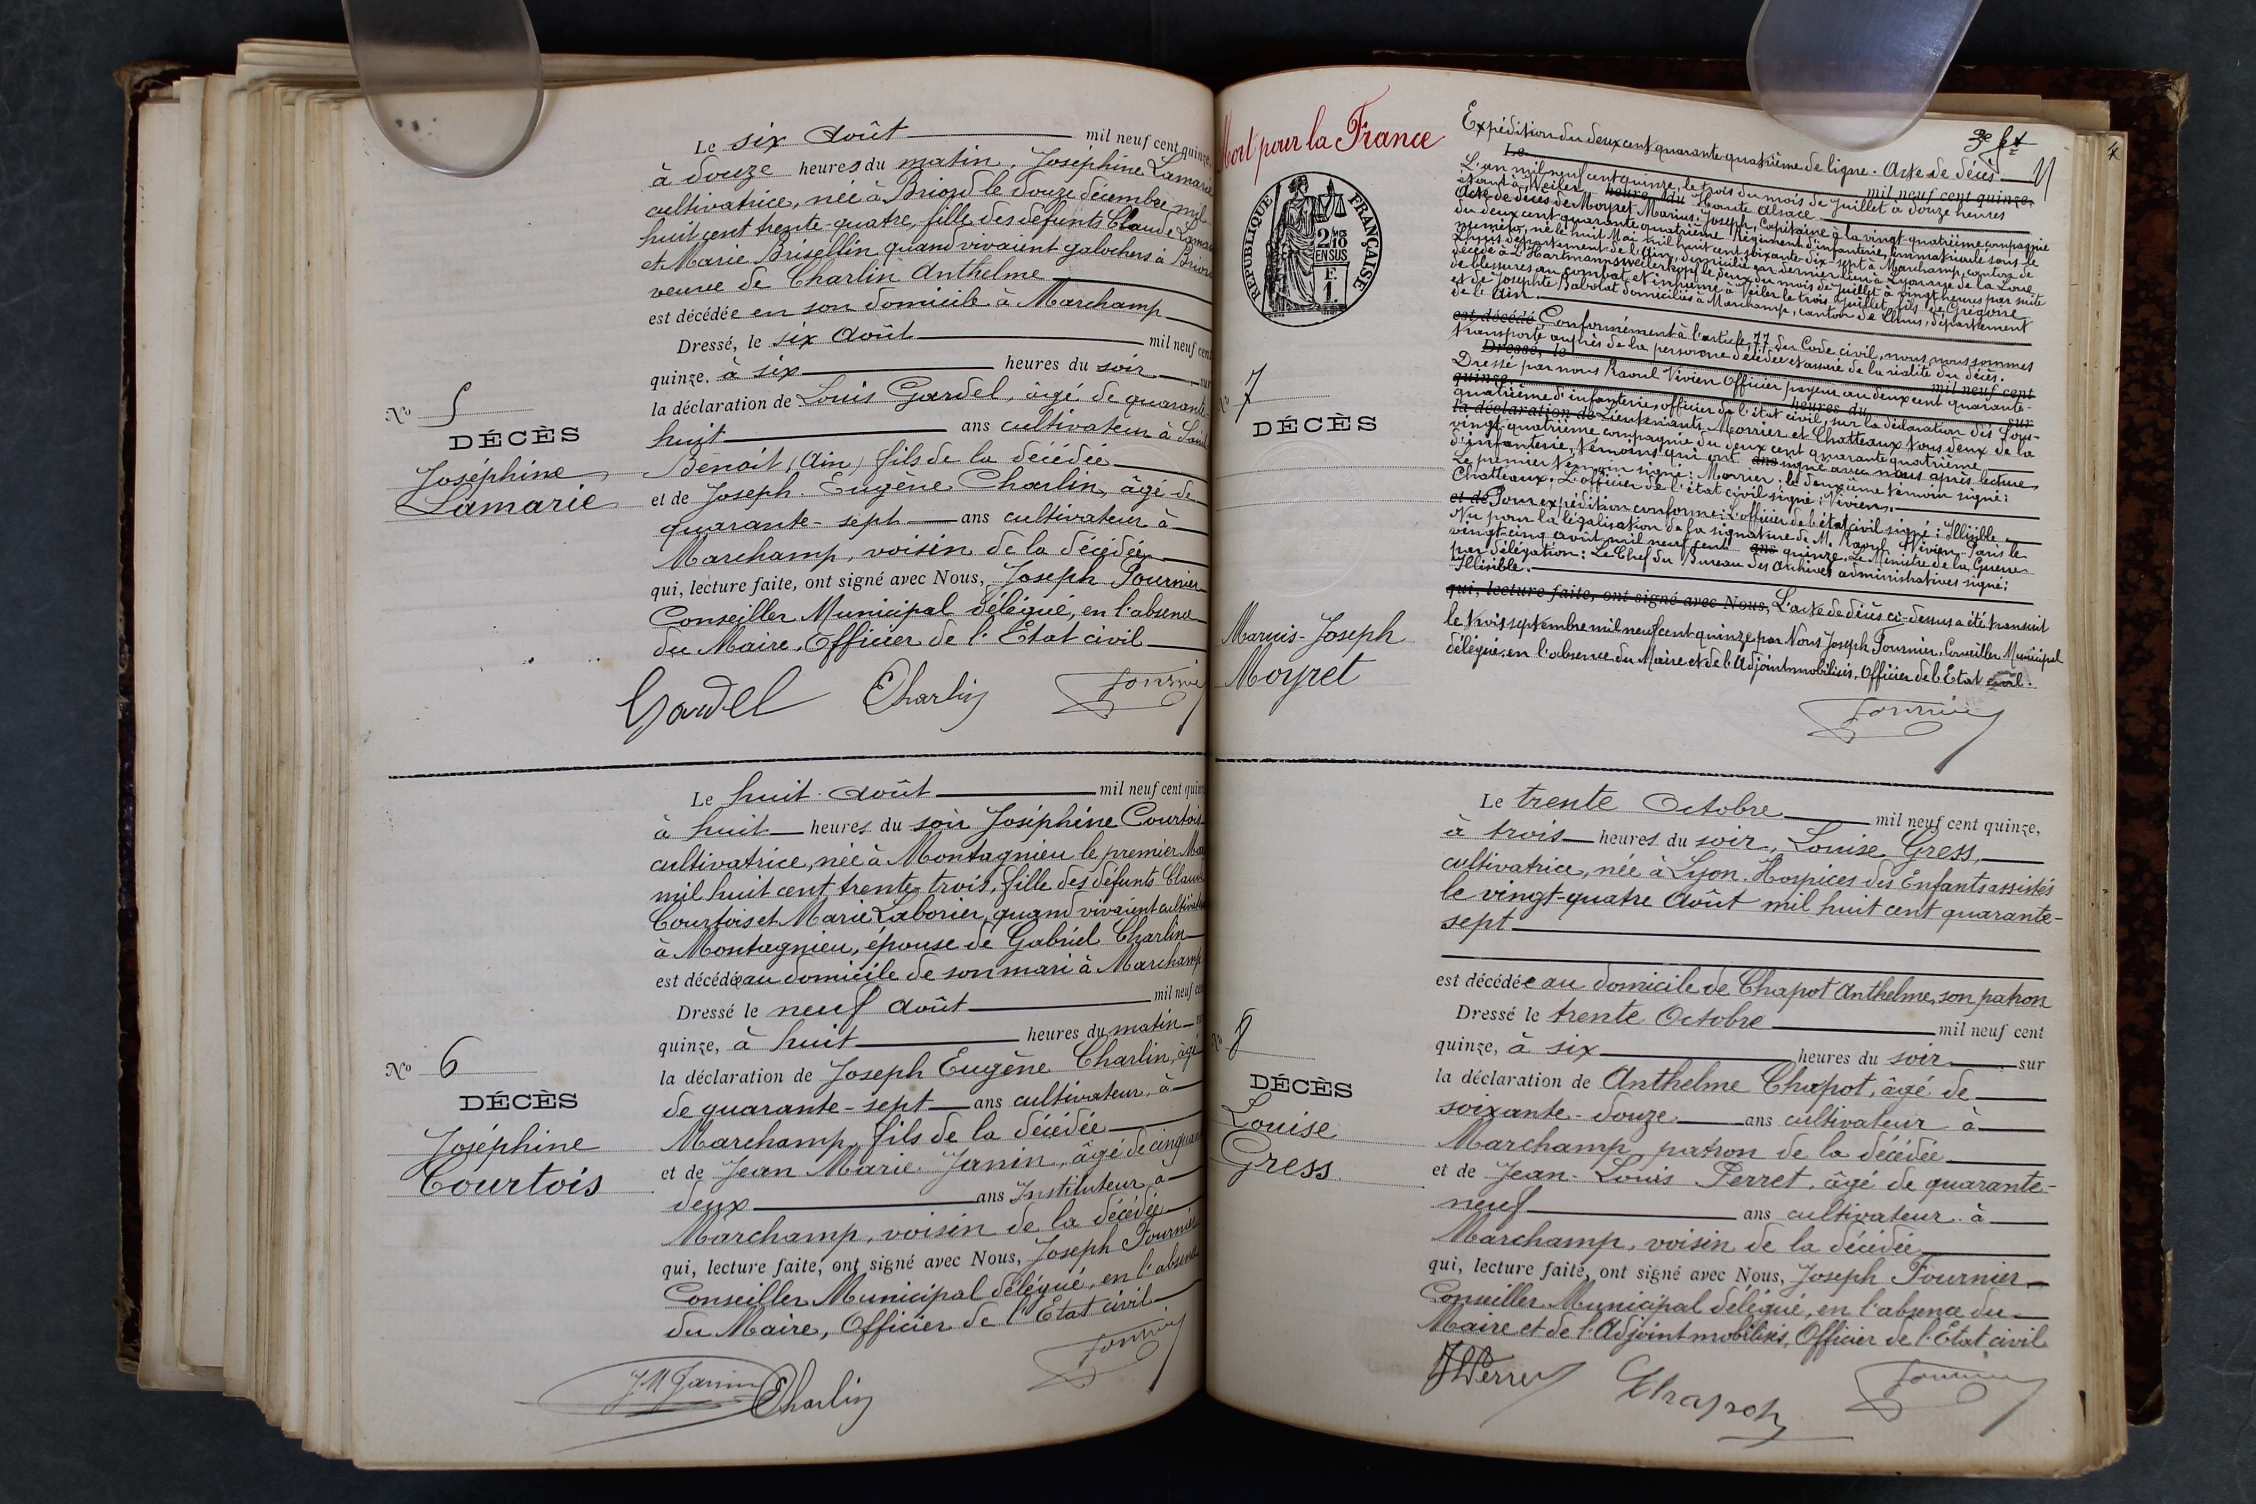 Le six Août mil neuf cent quinze,
à douze heures du matin, Joséphine Lamarie
cultivatrice, née à Briord le douze décembre mil
huit cent trente-quatre, fille des défunts Claude
et Marie Brisellin quand vivaient galochers à
veuve de Charlin Anthelme
est décédée en son domicile à Marchamp
Dressé, le six Août mil neuf cent
quinze, à six heures du soir, sur
la déclaration de Louis Gardel, âgé de quarante-
huit ans cultivateur à
Benoit (Ain) fils de la décédée
et de Joseph-Eugène Charlin, âgé de
quarante-sept ans cultivateur à
Marchamp, voisin de la décédée
qui, lecture faite, ont signé avec Nous, Joseph Fournier
Conseiller Municipal délégué, en l'absence
du Maire, Officier de l'Etat civil
Gardel Charlin Fournier
No 5
DÉCÈS
Joséphine
Lamarie
Le huit Août mil neuf cent quinze
à huit heures du soir Joséphine Courtois
cultivatrice, née à Montagnieu le premier
mil huit cent trente trois, fille des défunts
Courtois et Marie Laborier, quand vivaient
à Montagnieu, épouse de Gabriel Charlin
est décédée au domicile de son mari à Marchamp
Dressé le neuf Août mil neuf cent
quinze, à huit heures du matin
la déclaration de Joseph Eugène Charlin, âgé
de quarante-sept ans cultivateur, à
Marchamp, fils de la décédée
et de Jean Marie Janin, âgé de cinquante
deux ans Instituteur à
Marchamp, voisin de la décédée
qui, lecture faite, ont signé avec Nous, Joseph Fournier
Conseiller Municipal délégué, en l'absence
du Maire, Officier de l'Etat civil
J.M Janin Charlin Fournier
No 6
DÉCÈS
Joséphine
Courtois
Mort pour la France
RÉPUBLIQUE FRANÇAISE
2/10
EN SUS
1 F.
No 7
DÉCÈS
Marius-Joseph
Moyret
4
Expédition du deux cent quarante quatrième de ligne. Acte de décès
Le mil neuf cent quinze,
L'an mil neuf cent quinze, le trois du mois de Juillet à douze heures
étant à Weiler heures du Haute Alsace
Acte de décès de Moyret Marius-Joseph, Capitaine à la vingt-quatrième compagnie
du deux cent quarante quatrième Régiment d'infanterie, immatriculé sous le
numéro, né le huit Mai mil huit cent soixante-dix-sept à Marchamp, canton de
Lhuis département de l'Ain, domicilié en dernier lieu à Lyon rue de la Loue
décédé à L'Hartmannsweilerkopf le deux du mois de Juillet à vingt heures par suite
de blessures au combat, et inhumé à Weiler le trois Juillet, fils de Grégoire
et de Josephte Babolat domiciliés à Marchamp, canton de Lhuis, département
de l'Ain
est décédé Conformément à l'article 77 du Code civil, nous nous sommes
transporté auprès de la personne décédée et assuré de la réalité du décès.
Dressé, le mil neuf cent
Dressé par nous Raoul Vivien Officier payeur au deux cent quarante-
quinze heures du sur
quatrième d'infanterie, officier de l'état civil, sur la déclaration des Sous-
la déclaration de Lieutenants Morrier et Chatteaux tous deux de la
vingt-quatrième compagnie du deux cent quarante quatrième
d'infanterie, témoins qui ont ans signé avec nous après lecture
Le premier témoin signé: Morrier; le deuxième témoin signé:
Chatteaux. L'officier de l'état civil signé: Vivien.
et de Pour expédition conforme: L'officier de l'état civil signé: Illisible
Vu pour la légalisation de la signature de M. Raoul Vivien Paris le
vingt-cinq août mil neuf cent ans quinze. Le Ministre de la Guerre
par délégation: Le Chef du Bureau des Archives administratives signé:
Illisible.
qui, lecture faite, ont signé avec Nous, L'acte de décès ci-dessus a été transcrit
le trois septembre mil neuf cent quinze par Nous Joseph Fournier, Conseiller Municipal
délégué, en l'absence du Maire et de l'Adjoint mobilisés, Officier de l'Etat civil.
Fournier
Le trente Octobre mil neuf cent quinze,
à trois heures du soir, Louise Gress,
cultivatrice, née à Lyon. Hospices des Enfants assistés
le vingt-quatre Août mil huit cent quarante-
sept
est décédée au domicile de Chapot Anthelme, son patron
Dressé le trente Octobre mil neuf cent
quinze, à six heures du soir sur
la déclaration de Anthelme Chapot, âgé de
soixante-douze ans cultivateur à
Marchamp, patron de la décédée
et de Jean-Louis Perret, âgé de quarante-
neuf ans cultivateur à
Marchamp, voisin de la décédée
qui, lecture faite, ont signé avec Nous, Joseph Fournier
Conseiller Municipal délégué, en l'absence du
Maire et de l'Adjoint mobilisés, Officier de l'Etat civil
Perret Chapot Fournier
No 8
DÉCÈS
Louise
Gress